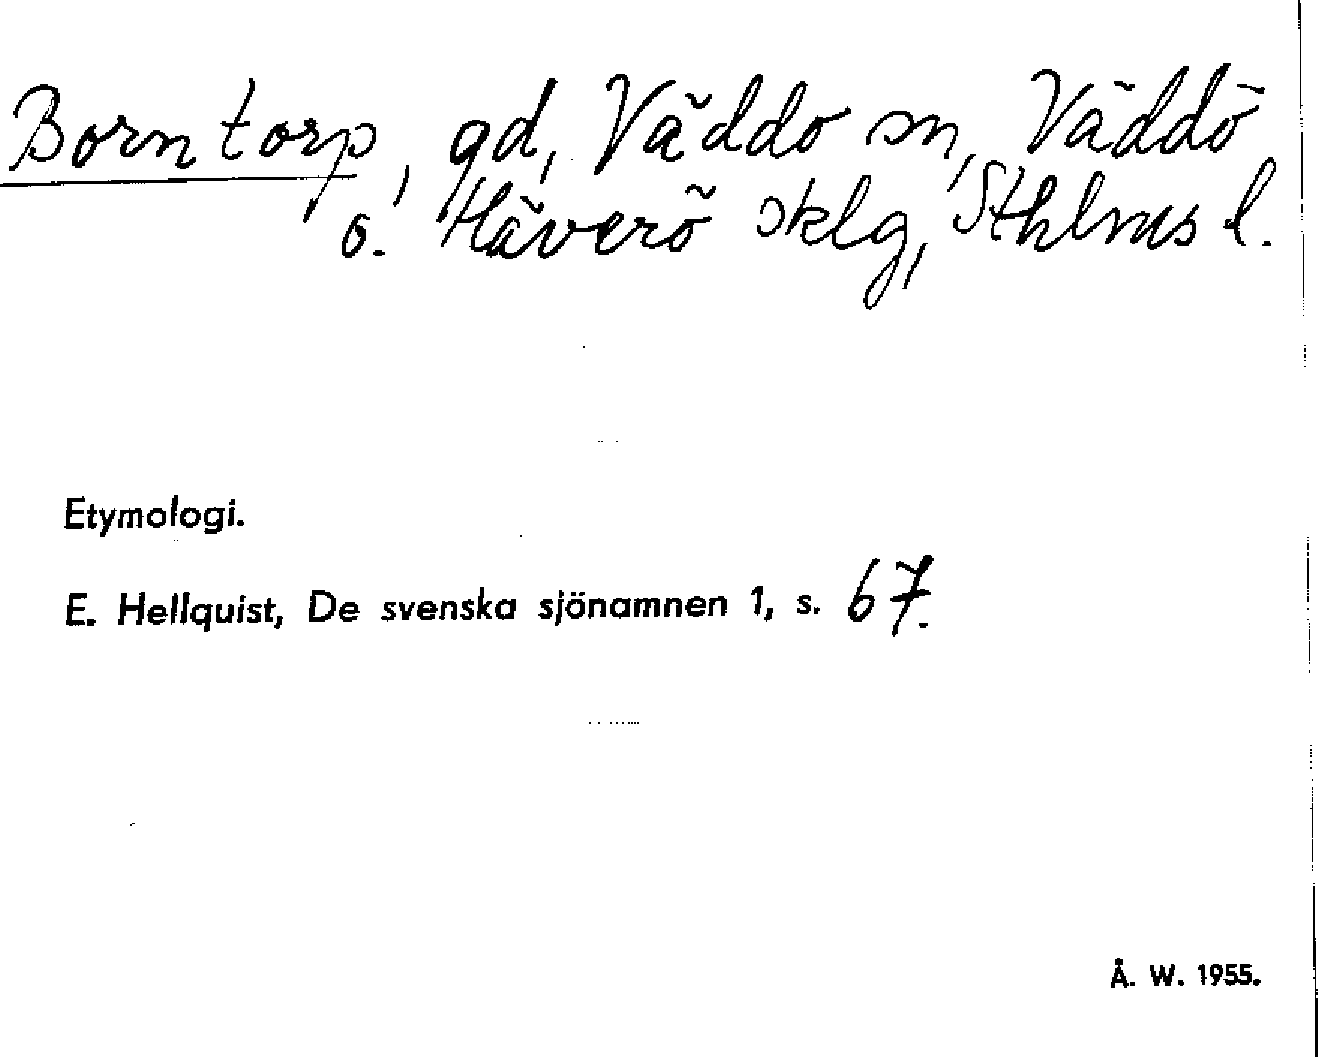 Borntorp, gd, Väddo sn, Väddö
o. Häverö sklg, Sthlms l.
Etymologi.
E. Hellquist, De svenska sjönamnen 1, s. 67.
Å. W. 1955.